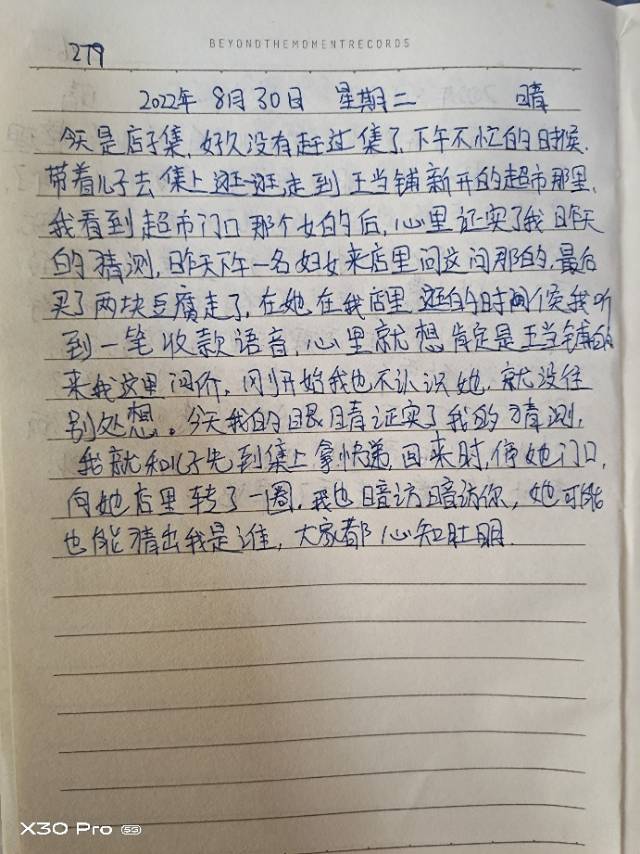 279
BEYONDTHEMOMENTRECORDS
2022年 8月30日 星期二 晴
今天是店子集,好久没有赶过集了,下午不忙的时候,
带着儿子去集上逛逛,走到王当铺新开的超市那里,
我看到超市门口那个女的后,心里证实了我昨天
的猜测,昨天下午一名妇女来店里问这问那的,最后
买了两块豆腐走了,在她在我店里逛的时间候我听
到一笔收款语音,心里就想肯定是王当铺的
来我这里问价,刚开始我也不认识她,就没往
别处想。今天我的眼睛证实了我的猜测,
我就和儿子先到集上拿快递,回来时,停她门口,
向她店里转了一圈,我也暗访暗访你,她可能
也能猜出我是谁,大家都心知肚明.
X30 Pro 5G